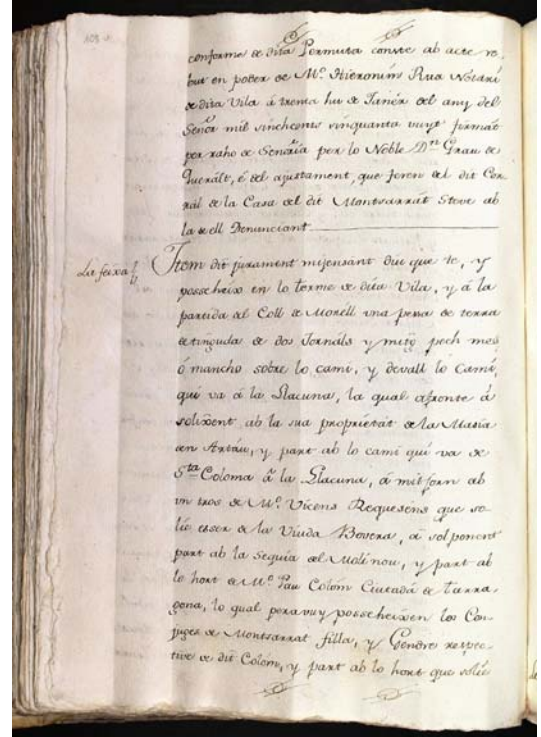 conforme de dita Permuta conste ab acte re-
but en poder de Mº. Hieronim Rua Notari
de dita Vila á trenta hu de Janér del any del
Señor mil sinchcents sinquanta vuyt firmat
per raho de Señoria per lo Noble Dn. Grau de
Queralt, é del ajustament, que foren del dit Cor-
ral de la Casa del dit Montsarrat Steve ab
la de ell Denunciant
La feixa Item dit jurament mijensant diu que te, y
posseheix en lo terme de dita Vila, y á la
partida del Coll de Morell una pessa de terra
de tinguda de dos Jornals y mitg poch mes
ó mancho sobre lo cami, y devall lo Cami,
qui va á la Llacuna, la qual afronte á
solixent ab la sua proprietat de la Masia
den Artau, y part ab lo cami qui va de
Sta. Coloma á la Llacuna, á mitjorn ab
un tros de Mº. Vicens Requesens que so-
lie esser de la Viuda Bovera, á sol ponent
part ab la Sequia del Moli nou, y part ab
lo hort de Mº. Pau Colom Ciutadá de Tarra-
gona, lo qual per avuy possehexen los Con-
juges de Montsarrat filla, y Gendre respec-
tive de dit Colom, y part ab lo hort que solie